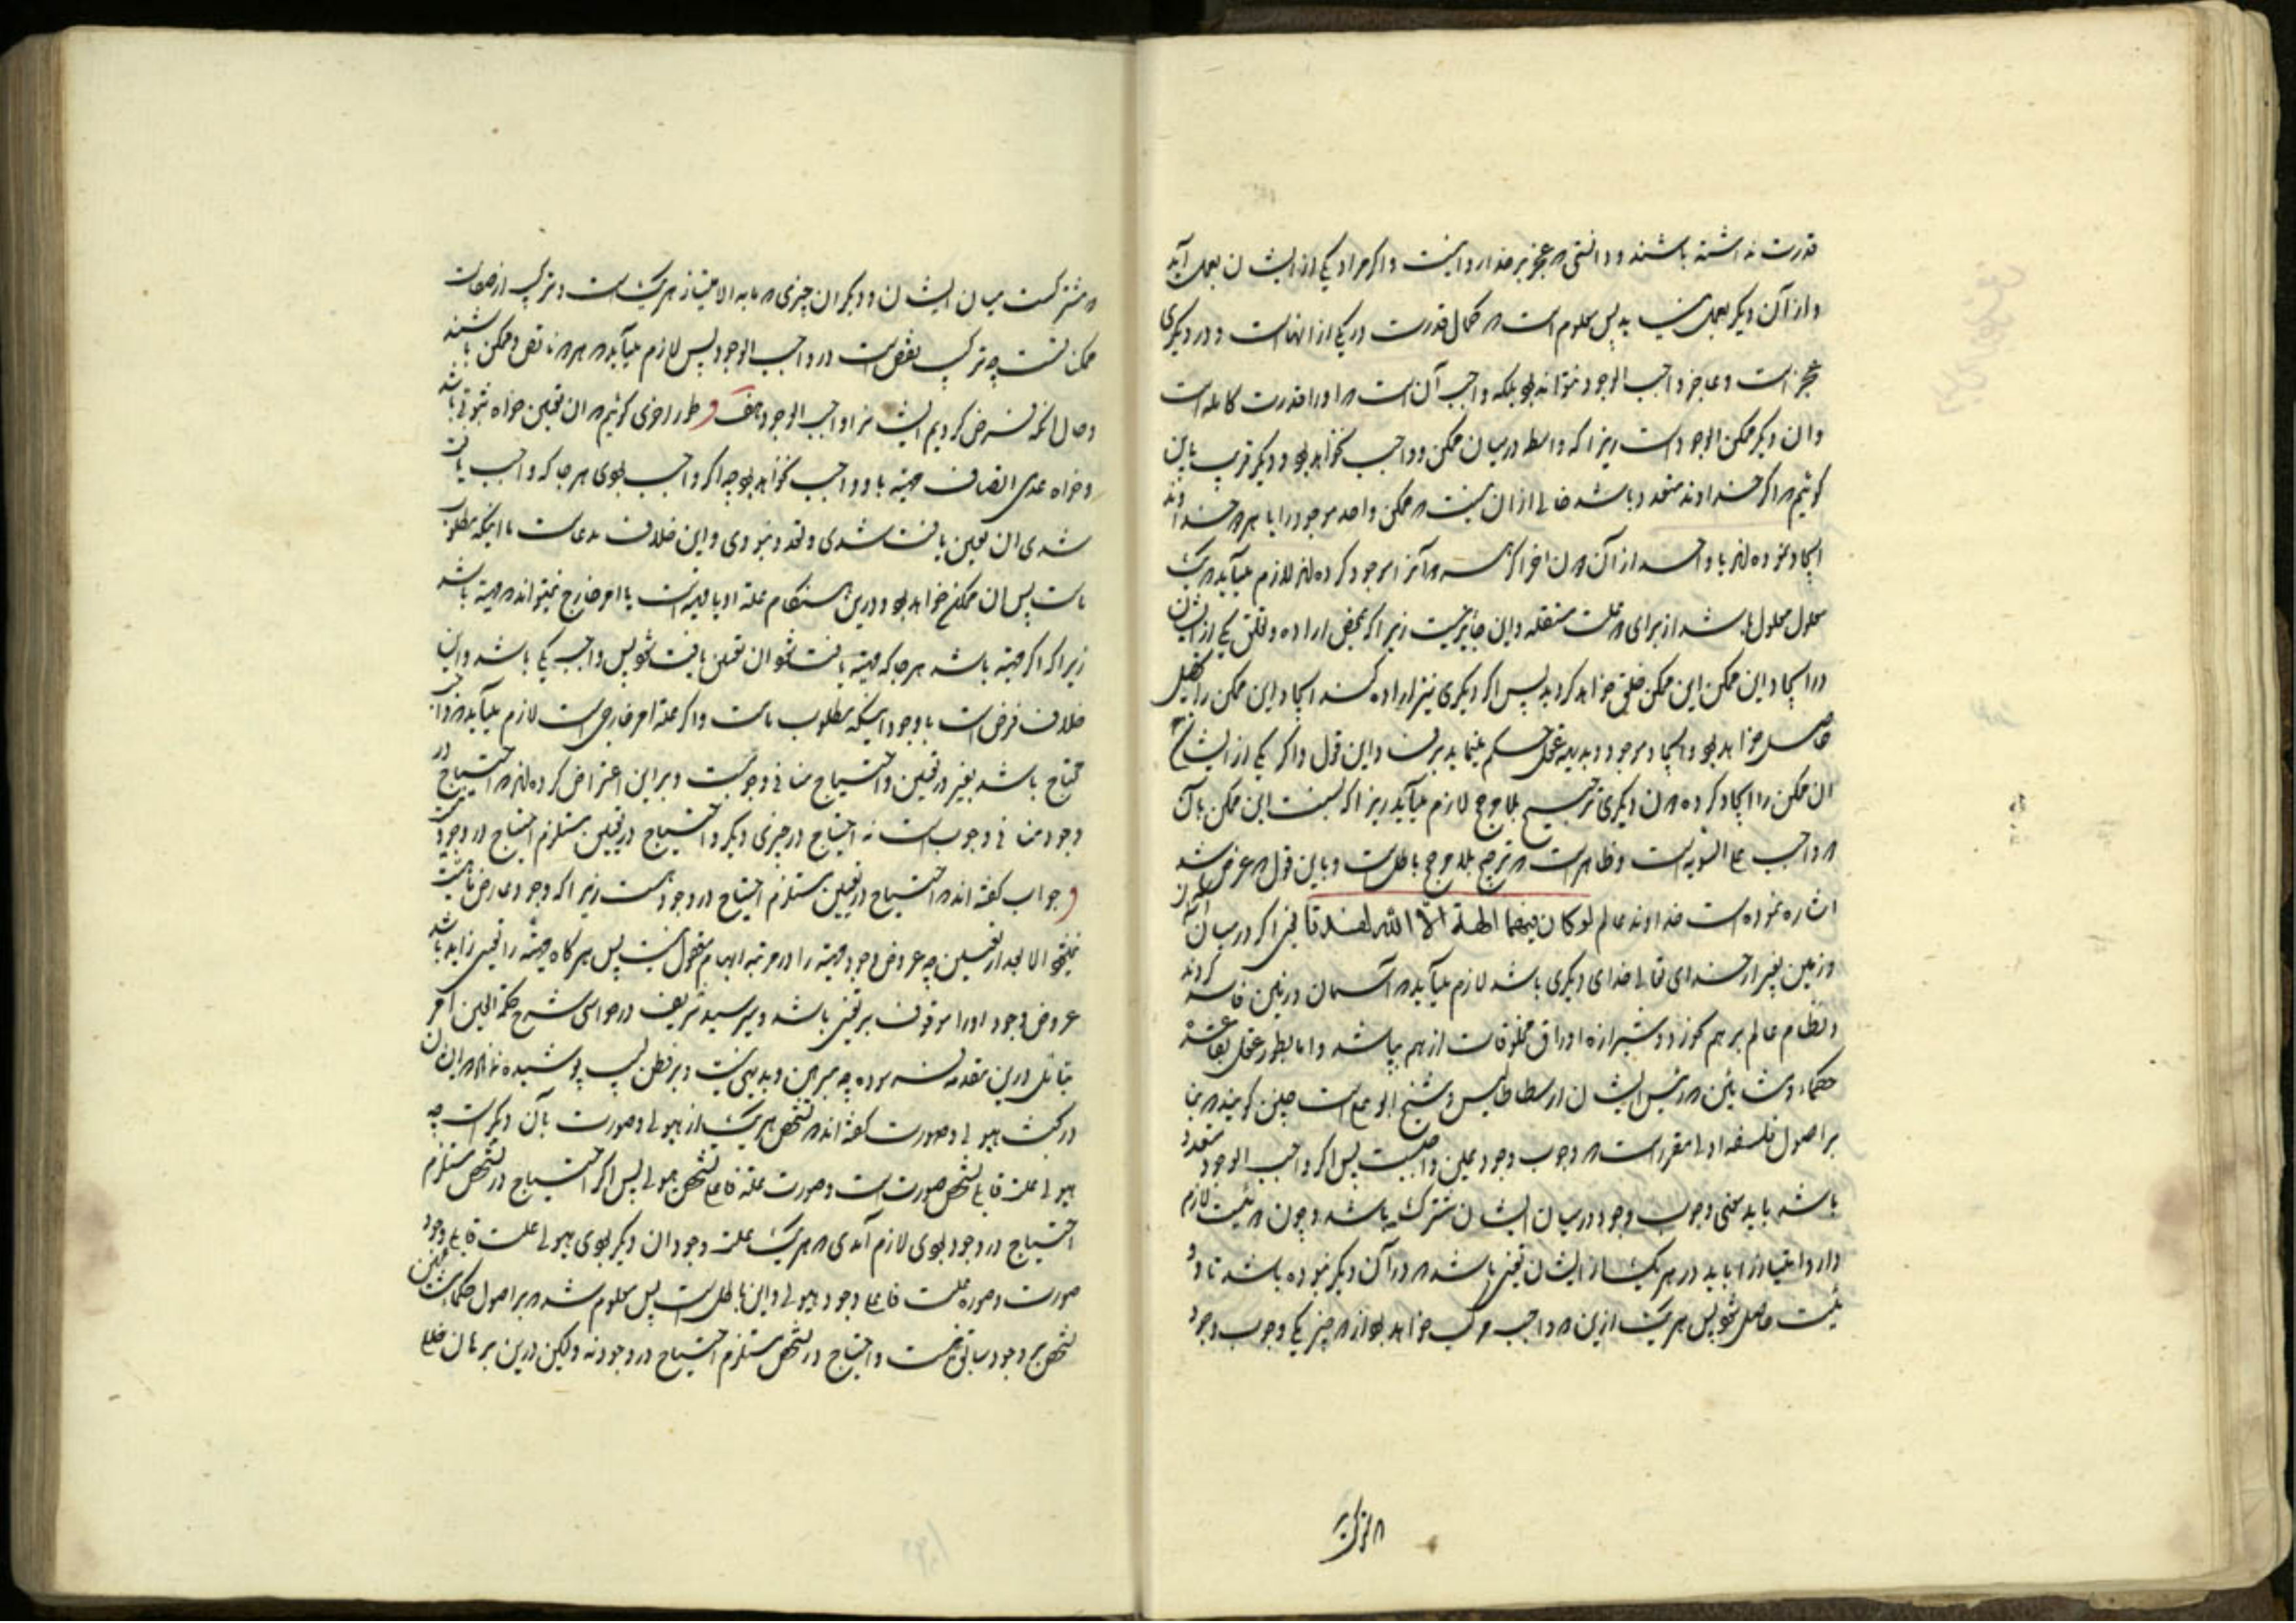 قدرت نداشته باشند و دانستی که عجز بر خدا روا نیست و اگر مراد یکی از ایشان بعمل آید
و از آن دیگر بعمل نیاید پس معلوم است که کمال قدرت در یکی از انهاست و در دیگری
عجز است و عاجز واجب الوجود نتواند بود بلکه واجب آن است که او را قدرت کامله است
و ان دیگر ممکن الوجود است زیرا که واسطه در میان ممکن و واجب نخواهد بود و دیگر قریب باین
گوئیم که اگر خداوند متعدد باشد خالی از ان نیست که ممکن واحد موجود را یا هر دو خداوند
ایجاد نموده اند یا واحد از آن اگر هر دو آنرا موجود کرده اند لازم میآید که یک
معلول معلول باشد از برای دو علت مستقله و این جایز نیست زیرا که بمحض اراده و خلق یکی از ایشان
در ایجاد این ممکن این ممکن خلق خواهد گردید پس اگر دیگری نیز اراده کند ایجاد این ممکن را تحصیل
حاصل خواهد بود و ایجاد موجود و بدیهه عقل حکم مینماید بر این قول و اگر یکی از ایشان
ان ممکن را ایجاد کرده دون دیگری ترجیح بلا مرجح لازم میآید زیرا که نسبت این ممکن بآن
دو واجب علی السویه است و ظاهر است که ترجیح بلا مرجح باطل است و باین قول که عرض شد
اشاره نموده است خداوند عالم لو کان فیهما الهة الا الله لفسدتا یعنی اگر در میان آسمان
و زمین بغیر از خدای تعالی خدای دیگری باشد لازم میآید که آسمان و زمین فاسد گردند
و نظام عالم بر هم خورد و شیرازه اوراق مخلوقات از هم بپاشد و اما بطور عقل
حکماء مشائین که رئیس ایشان ارسطاطالیس و شیخ ابو علی است چنین گویند که بنا
بر اصول فلسفه اولی مقرر است که وجوب وجود عین واجب است پس اگر واجب الوجود متعدد
باشد باید معنی وجوب وجود در میان ایشان مشترک باشد و چون اثنینیت لازم
دارد امتیاز را باید در هر یک از ایشان تعینی باشد که در آن دیگر نبوده باشد تا
اثنینیت حاصل شود پس هر یک ازین دو واجب مرکب خواهد بود از دو چیز یکی وجوب وجود
که مشترکست میان ایشان و دیگر ان چیزی که ما به الامتیاز هر یک است و ترکیب از صفات
ممکن است چه ترکیب نقص است در واجب الوجود پس لازم میآید که هر دو ناقص و ممکن باشند
و حال آنکه فرض کردیم ایشانرا واجب الوجود هف و بطور اخری گوئیم که ان تعین خواه ثبوتی باشد
و خواه عدمی اتصاف مهیة باو واجب نخواهد بود چه اگر واجب بودی هر جا که واجب یافت
شدی ان تعین یافت شدی و تعدد نبودی و این خلاف مدعاست با اینکه مطلوب
ماست پس ان ممکن خواهد بود و درین هنگام علة او یا مهیة است یا امر خارج نمیتواند که مهیة باشد
زیرا که اگر مهیة باشد هر جا که مهیة یافت شود ان تعین یافت شود پس واجب یکی باشد و این
خلاف فرض است با وجود اینکه مطلوب ماست و اگر علة امر خارجی است لازم میآید که واجب
محتاج باشد بغیر در تعین و احتیاج منافی وجوبست و بر این اعتراض کرده اند که احتیاج در
وجود منافی وجوب است نه احتیاج در چیزی دیگر و احتیاج در تعین مستلزم احتیاج در وجود نیست
و جواب گفته اند که احتیاج در تعین مستلزم احتیاج در وجود است زیرا که وجود عارض ماهیت
نمیشود الا بعد از تعین چه عروض وجود مهیة را در مرتبه ابهام معقول نیست پس هر گاه مهیة را تعینی زاید باشد
عروض وجود او را موقوف بر تعین باشد و میر سید شریف در حواشی شرح حکمة العین
تأمل درین مقدمه فرموده چه مبرهن و بدیهی نیست و بر فطن لبیب پوشیده نماند که ایشان
در بحث هیولی و صورت گفته اند که تشخص هر یک از هیولی و صورت بآن دیگر است چه
هیولی علت قابلی تشخص صورت است و صورت علة فاعلی تشخص هیولی پس اگر احتیاج در تشخص مستلزم
احتیاج در وجود بودی لازم آمدی که هر یک علت وجود ان دیگر بودی هیولی علت قابلی وجود
صورت و صورة علت فاعلی وجود هیولی و این باطل است پس معلوم شد که بر اصول حکماء مشائین
تشخص بر وجود سابق نیست و احتیاج در تشخص مستلزم احتیاج در وجود نه و لیکن درین برهان خللی